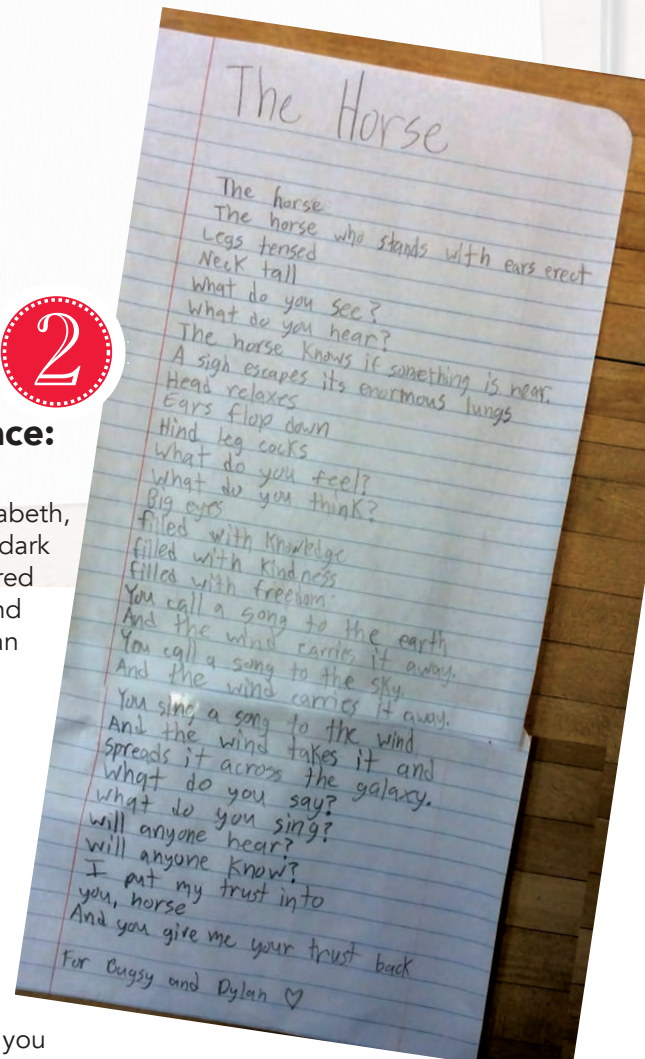 The Horse
The horse
The horse who stands with ears erect
Legs tensed
Neck tall
What do you see?
What do you hear?
The horse knows if something is near.
A sigh escapes its enormous lungs
Head relaxes
Ears flop down
Hind leg cocks
What do you feel?
What do you think?
Big eyes
filled with knowledge
filled with kindness
filled with freedom
You call a song to the earth
And the wind carries it away.
You call a song to the sky
And the wind carries it away.
You sing a song to the wind
And the wind takes it and
spreads it across the galaxy.
What do you say?
What do you sing?
will anyone hear?
will anyone know?
I put my trust into
you, horse
And you give me your trust back
For Bugsy and Dylan ♡
2
nce:
abeth,
dark
red
nd
an
you